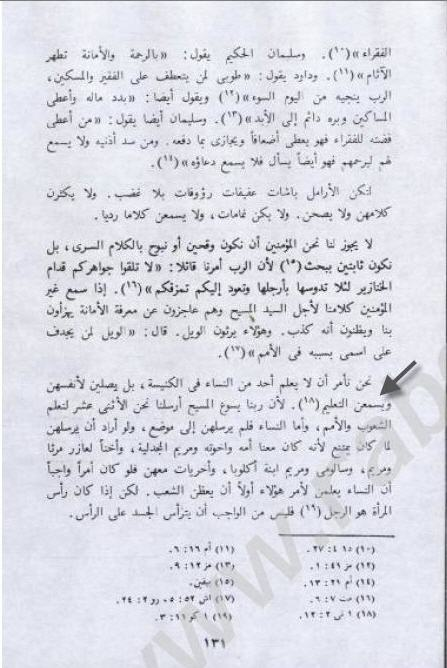 الفقراء»(١٠). وسليمان الحكيم يقول: «بالرحمة والأمانة تطهر
الآثام»(١١). وداود يقول: «طوبى لمن يتعطف على الفقير والمسكين،
الرب ينجيه من اليوم السوء»(١٢) ويقول أيضا: «بدد ماله وأعطى
المساكين وبره دائم إلى الأبد»(١٣). وسليمان أيضا يقول: «من أعطى
فضته للفقراء فهو يعطى أضعافاً ويجازى بما دفعه. ومن سد أذنيه ولا يسمع
لهم ليرحمهم فهو أيضاً يسأل فلا يسمع دعاؤه»(١٤).
لتكن الأرامل باشات عفيفات رؤوفات بلا غضب. ولا يكثرن
كلامهن ولا يصحن. ولا يكن نمامات، ولا يسمعن كلاما رديا.
لا يجوز لنا نحن المؤمنين أن نكون وقحين أو نبوح بالكلام السرى، بل
نكون ثابتين ببحث(١٥) لأن الرب أمرنا قائلا: «لا تلقوا جواهركم قدام
الخنازير لئلا تدوسها بأرجلها وتعود إليكم تمزقكم»(١٦). إذا سمع غير
المؤمنين كلامنا لأجل السيد المسيح وهم عاجزون عن معرفة الأمانة يهزأون
بنا ويظنون أنه كذب. وهؤلاء يرثون الويل. قال: «الويل لمن يجدف
على اسمى بسببه فى الأمم»(١٧).
نحن نأمر أن لا يعلم أحد من النساء فى الكنيسة، بل يصلين لأنفسهن
ويسمعن التعليم(١٨). لأن ربنا يسوع المسيح أرسلنا نحن الأثنى عشر لنعلم
الشعوب والأمم، وأما النساء فلم يرسلهن إلى موضع، ولو أراد أن يرسلهن
لما كان يمتنع لأنه كان معنا أمه واخوته ومريم المجدلية، وأختاً لعازر مرثا
ومريم، وسالومى ومريم ابنة أكلوبا، وأخريات معهن فلو كان أمراً واجباً
أن النساء يعلمن لأمر هؤلاء أولاً أن يعظن الشعب. لكن إذا كان رأس
المرأة هو الرجل(١٩) فليس من الواجب أن يترأس الجسد على الرأس.
(١٠) دا ٤: ٢٧. (١١) أم ١٦: ٦.
(١٢) مز ٤١: ١. (١٣) مز ١١٢: ٩.
(١٤) أم ٢١: ١٣. (١٥) بيقين.
(١٦) مت ٧: ٦. (١٧) اش ٥٢: ٥، رو ٢: ٢٤.
(١٨) ١ تى ٢: ١٢. (١٩) ١ كو ١١: ٣.
١٣١